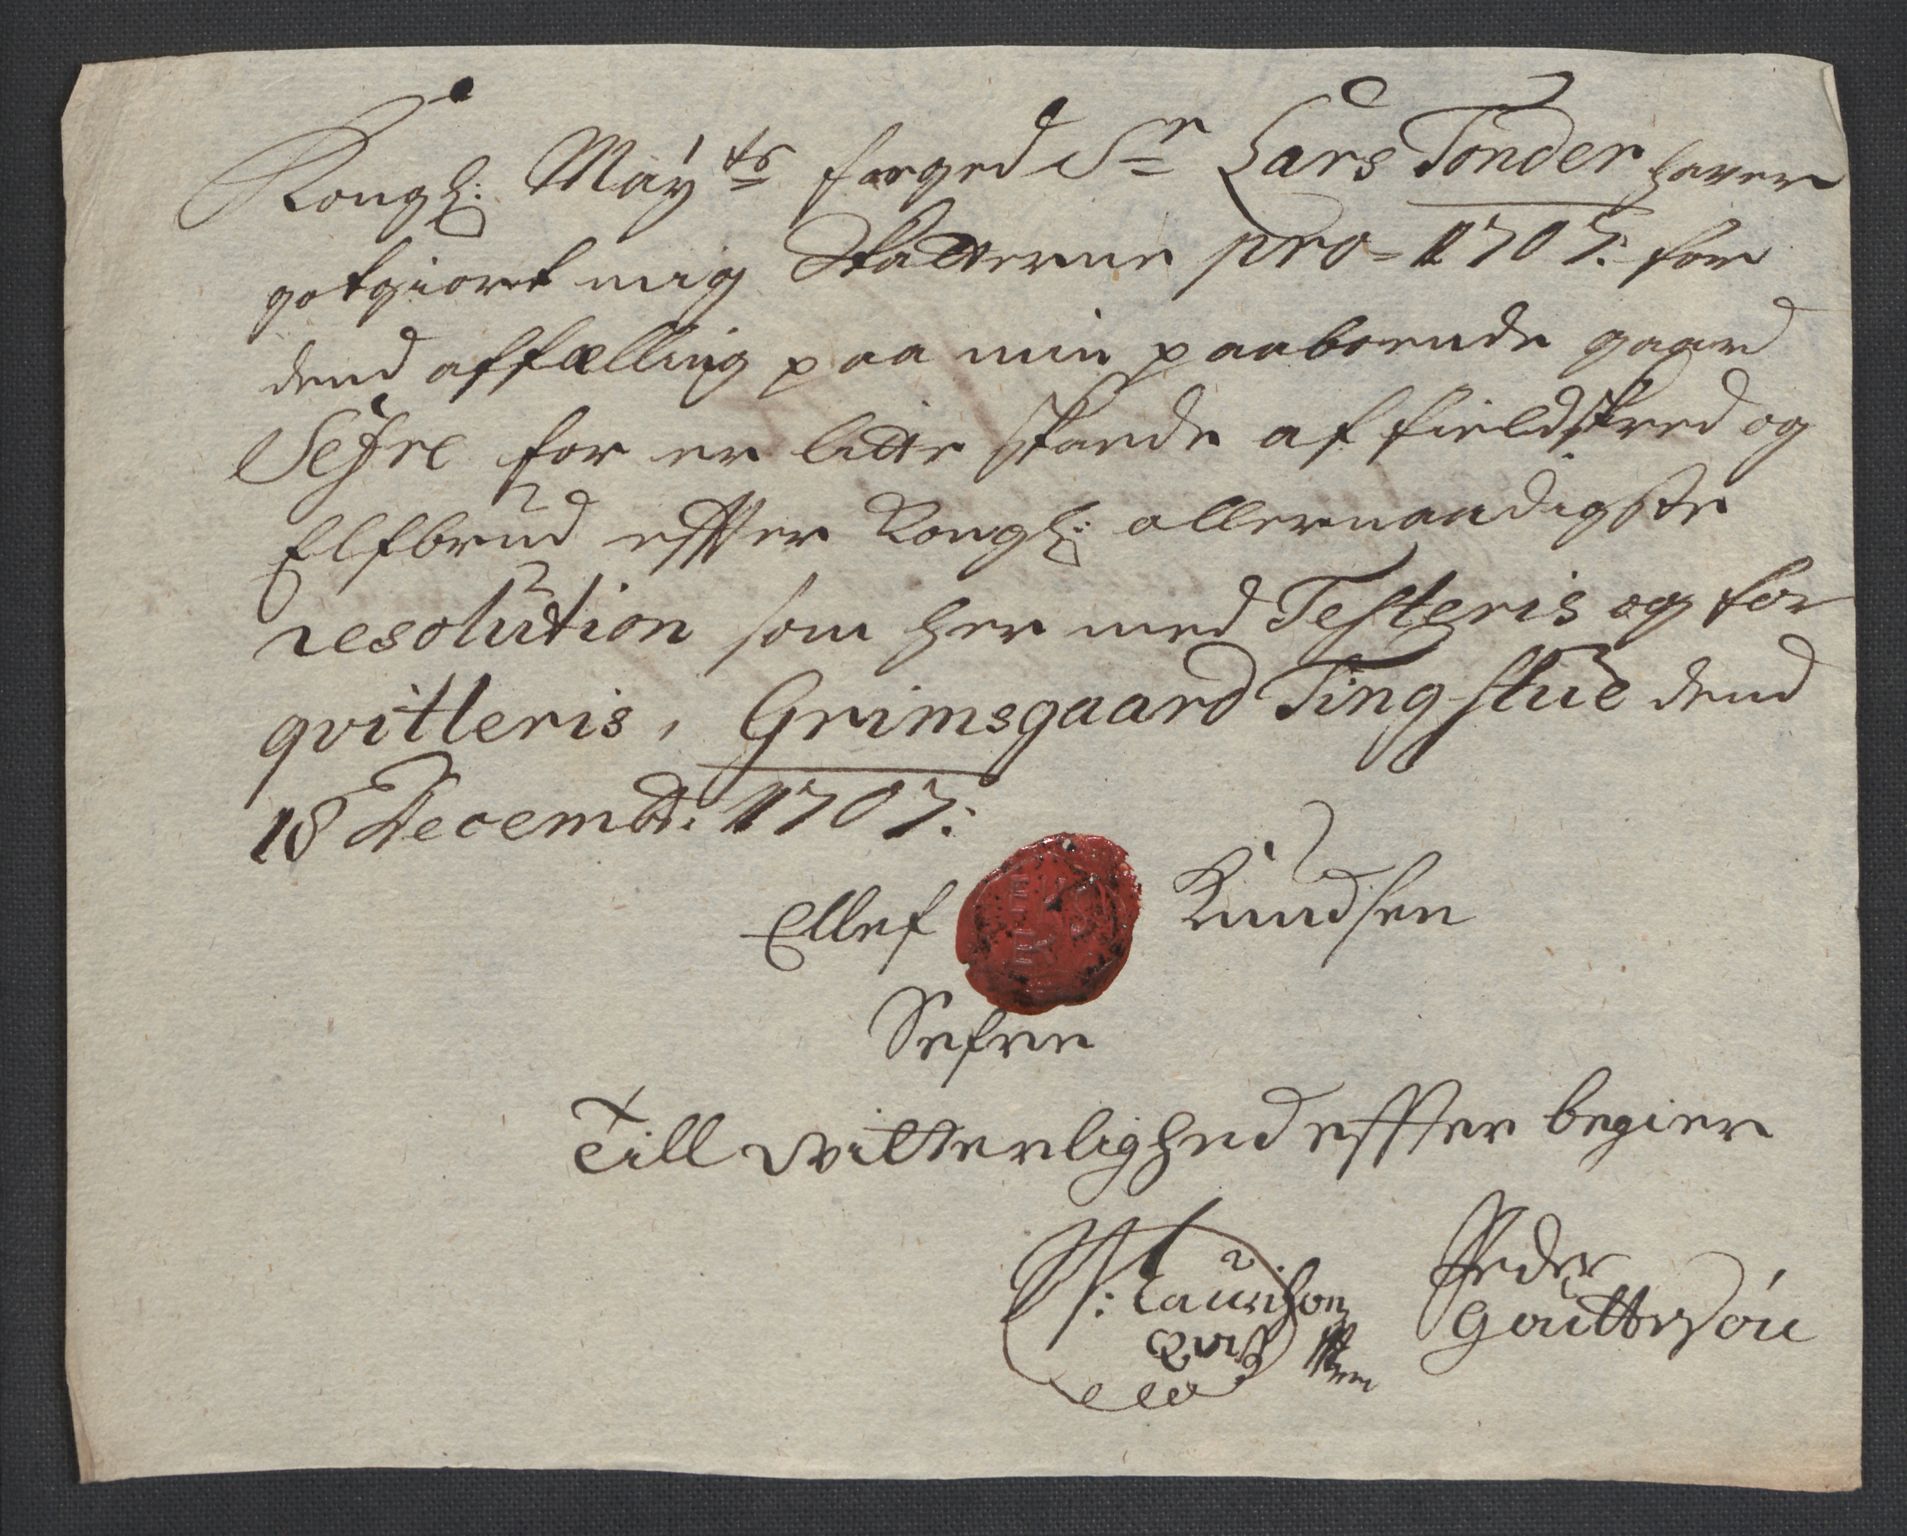 Kongl: Maÿ.ts foeged Sr Lars Tonder hafver
gotgiort mig Skatterne pro = 1707: for
dend affælling paa min paaboende gaard
Sefre for er lidte skaede af fieldskred og
Elfbrud effter Kongl: allernaadigste
resolution som her med Testeris og for
qvitteris, Grimsgaard Tingstue dend
18 Decemb: 1707:
Ellef Knudsen
Sefree
Till witterlighed effter begier
Laurison
Qvist
Peder
Gouttesøn